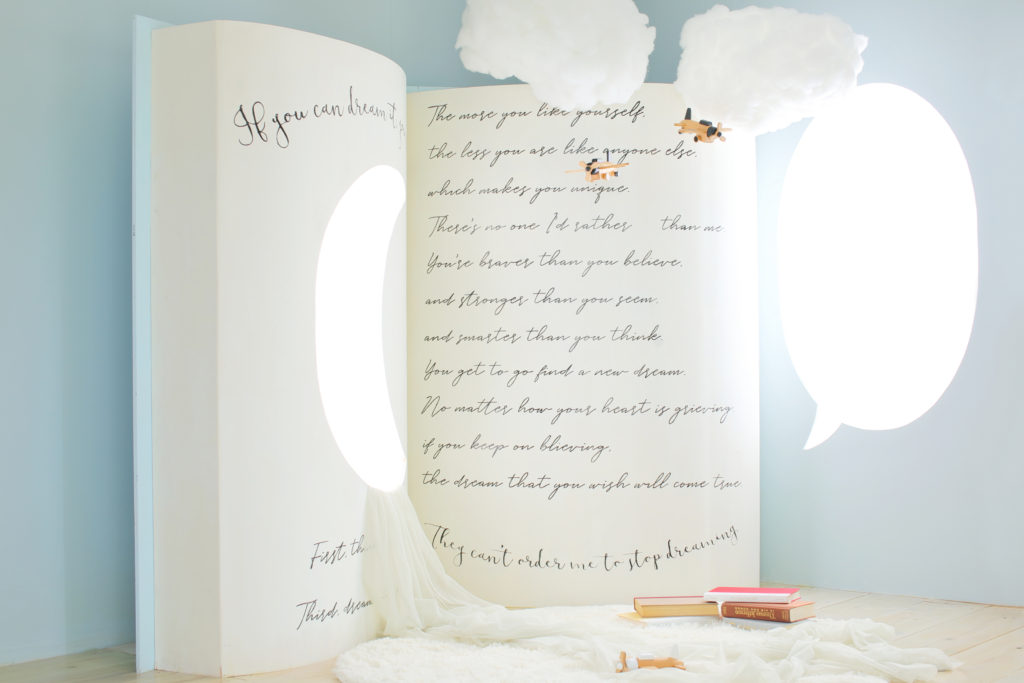 If you can dream it,
First, th
Third, dream
The more you like yourself,
the less you are like anyone else,
which makes you unique.
There's no one I'd rather than me
You're braver than you believe,
and stronger than you seem,
and smarter than you think.
You get to go find a new dream.
No matter how your heart is grieving
if you keep on blieving,
the dream that you wish will come true
They can't order me to stop dreaming